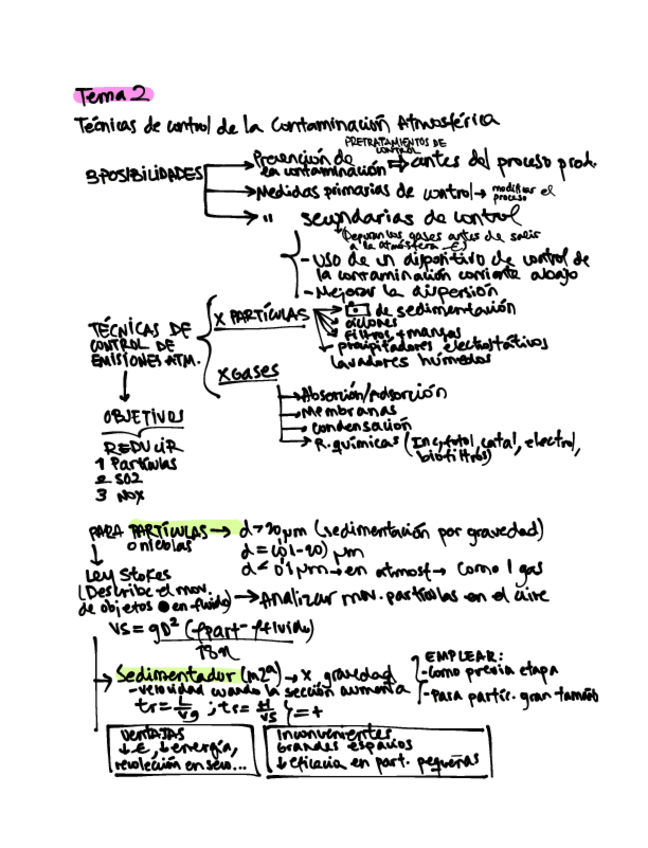 Tema 2
Técnicas de control de la Contaminación Atmosférica
PRETRATAMIENTOS DE CONTROL
3 POSIBILIDADES → Prevención de la contaminación ⇒ antes del proceso prod.
→ Medidas primarias de control → modificar el proceso
→ " secundarias de control
Depuran los gases antes de salir
a la atmósfera
- Uso de un dispositivo de control de
la contaminación corriente abajo
- Mejorar la dispersión
TÉCNICAS DE
CONTROL DE
EMISIONES ATM.
X PARTÍCULAS
de sedimentación
ciclones
filtros + mangas
precipitadores electrostáticos
lavadores húmedos
X GASES
→ Absorción/Adsorción
→ Membranas
→ condensación
→ R. químicas (Inc, fotol, catal, electrol,
biofiltros)
OBJETIVOS
REDUCIR
1 Partículas
2 SO2
3 NOX
PARA PARTÍCULAS → d > 20 μm (sedimentación por gravedad)
o nieblas
d = (0'1-20) μm
d < 0'1 μm → en atmosf → como 1 gas
Ley Stokes
(Describe el mov.
de objetos en fluido) → Analizar mov. partículas en el aire
VS = gD² (ρpart - ρfluido)
18η
→ Sedimentador (m2ª) → x gravedad
- velocidad cuando la sección aumenta
tr = L/vg ; ts = H/vs
EMPLEAR:
- Como previa etapa
- Para partíc. gran tamaño
VENTAJAS
↓ €, ↓ energía,
recolección en seco...
Inconvenientes
Grandes espacios
↓ eficacia en part. pequeñas